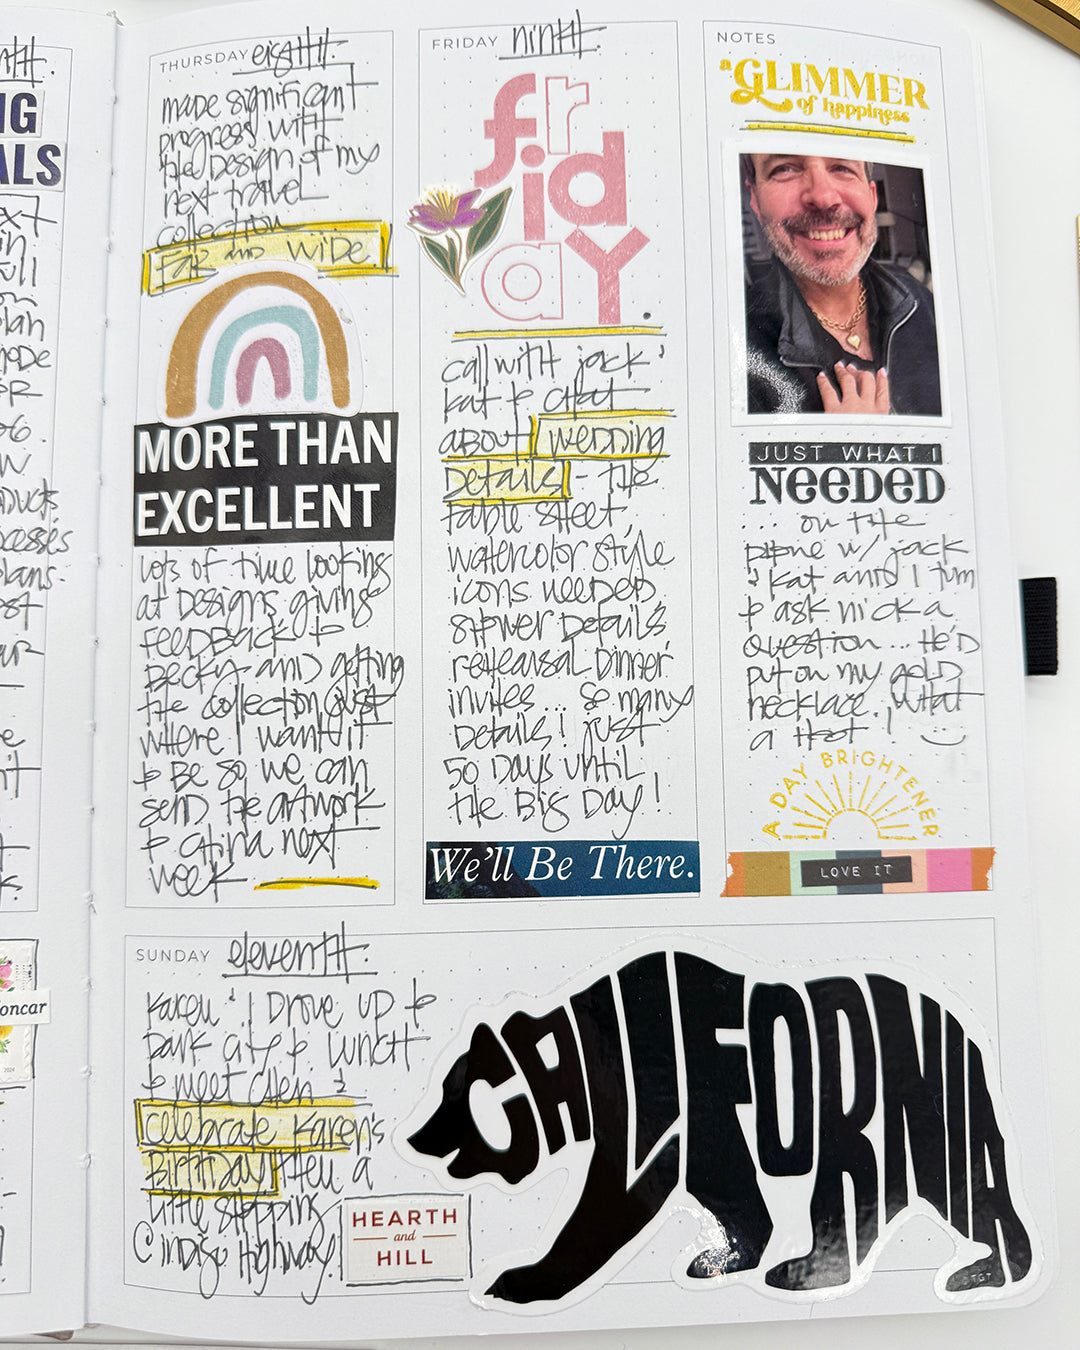 NG
ALS
THURSDAY eighth.
made significant
progress with
the design of my
next travel
collection...
FAR and WIDE.
MORE THAN
EXCELLENT
lots of time looking
at designs, giving
feedback to
Becky and getting
the collection just
where I want it
to be so we can
send the artwork
to china next
week
FRIDAY ninth.
friday.
call with jack &
kat to chat
about wedding
details - the
table sheet,
watercolor style
icons needed
shower details,
rehearsal dinner
invites... so many
details! just
50 days until
the Big Day!
We'll Be There.
NOTES
a GLIMMER
of happiness
JUST WHAT I
NEEDED
... on the
phone w/ jack
& kat and I turn
to ask nick a
question... He'd
put on my gold
necklace. What
a thot! :)
A DAY BRIGHTENER
LOVE IT
SUNDAY eleventh.
Karen & I drove up to
park city to lunch
to meet Chen &
celebrate Karen's
Birthday then a
little shopping
@ indigo Highway.
HEARTH
and
HILL
CALIFORNIA
©TGT